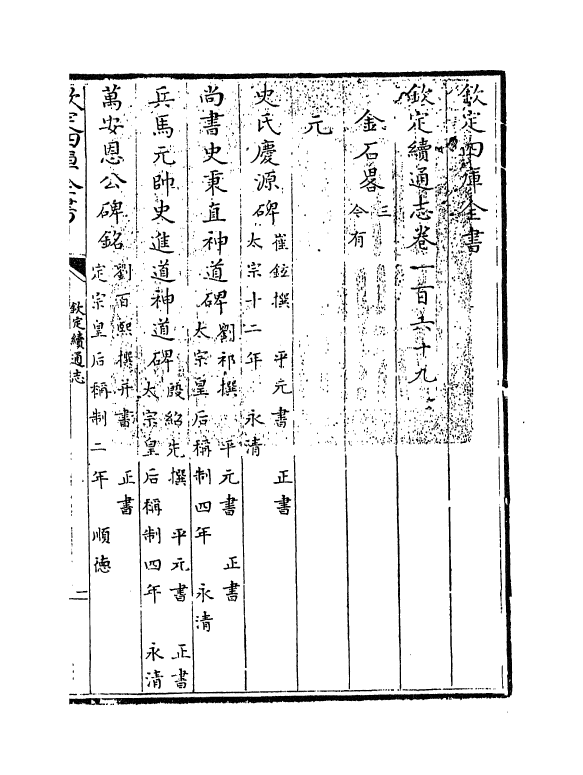 欽定四庫全書
欽定續通志卷一百六十九
金石畧三今有
元
史氏慶源碑崔鉉撰 平元書 正書太宗十二年 永清
尚書史秉直神道碑劉祁撰 平元書 正書太宗皇后稱制四年 永清
兵馬元帥史進道神道碑段紹先撰 平元書 正書太宗皇后稱制四年 永清
萬安恩公碑銘劉百熙撰并書 正書定宗皇后稱制二年 順德
欽定四庫全書
欽定續通志